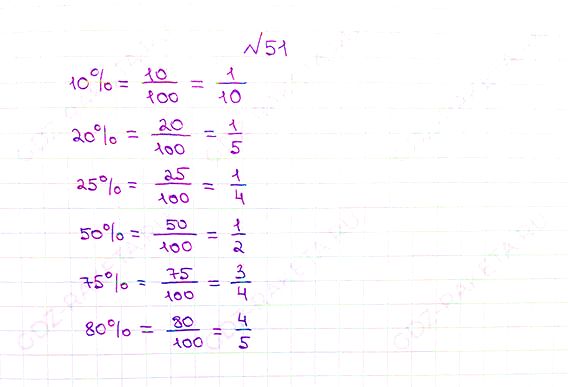 √51
10% = 10/100 = 1/10
20% = 20/100 = 1/5
25% = 25/100 = 1/4
50% = 50/100 = 1/2
75% = 75/100 = 3/4
80% = 80/100 = 4/5